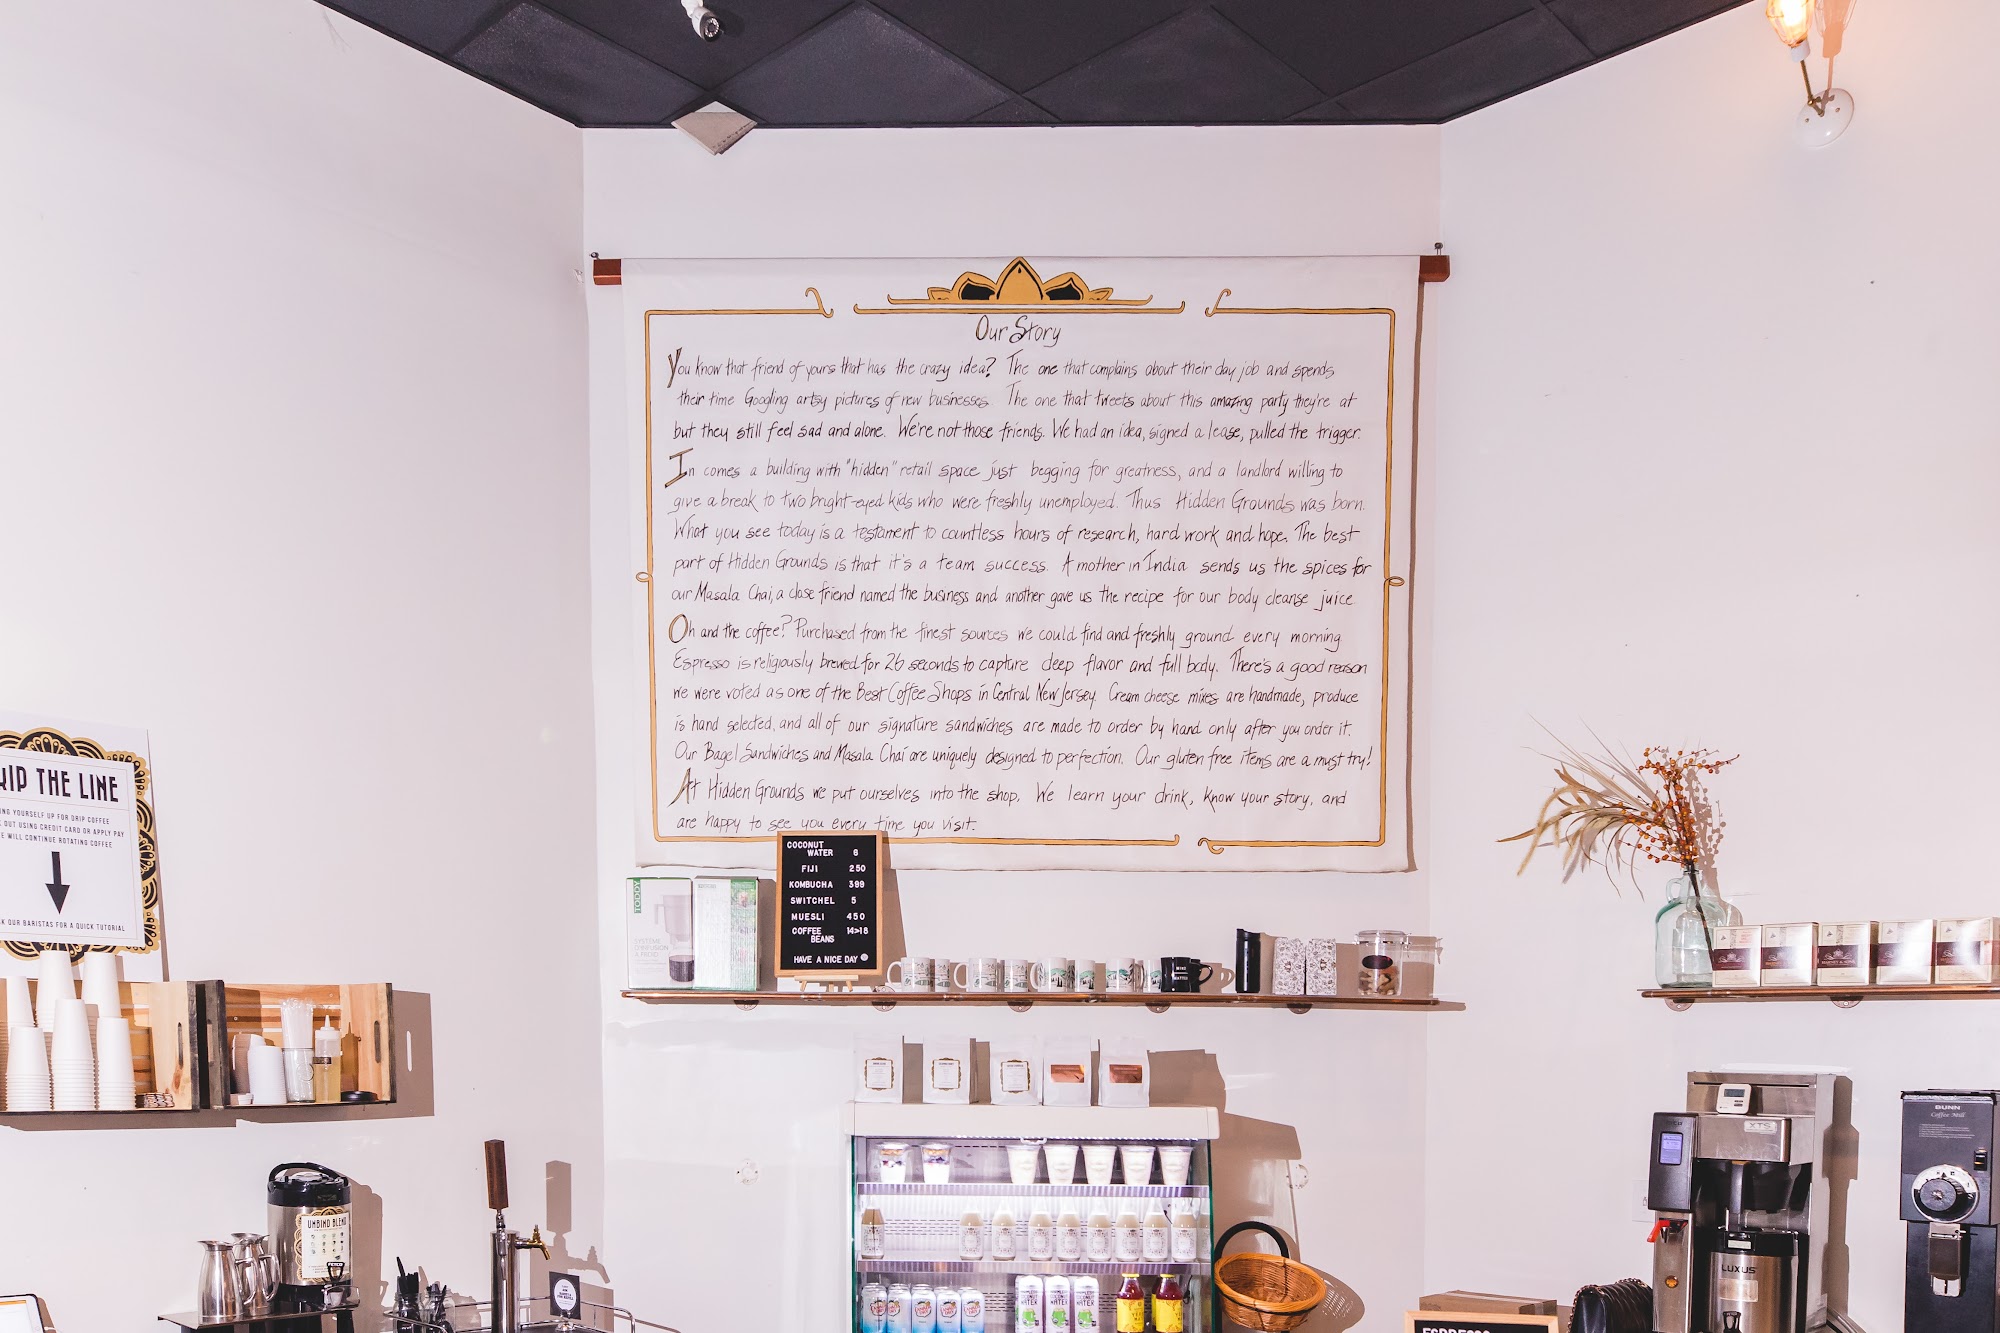 Our Story
You know that friend of yours that has the crazy idea? The one that complains about their day job and spends
their time Googling artsy pictures of new businesses. The one that tweets about this amazing party they're at
but they still feel sad and alone. We're not those friends. We had an idea, signed a lease, pulled the trigger.
In comes a building with "hidden" retail space just begging for greatness, and a landlord willing to
give a break to two bright-eyed kids who were freshly unemployed. Thus Hidden Grounds was born.
What you see today is a testament to countless hours of research, hard work and hope. The best
part of Hidden Grounds is that it's a team success. A mother in India sends us the spices for
our Masala Chai, a close friend named the business and another gave us the recipe for our body cleanse juice
Oh and the coffee? Purchased from the finest sources we could find and freshly ground every morning
Espresso is religiously brewed for 26 seconds to capture deep flavor and full body. There's a good reason
we were voted as one of the Best Coffee Shops in Central New Jersey. Cream cheese mixes are handmade, produce
is hand selected, and all of our signature sandwiches are made to order by hand only after you order it.
Our Bagel Sandwiches and Masala Chai are uniquely designed to perfection. Our gluten free items are a must try!
At Hidden Grounds we put ourselves into the shop. We learn your drink, know your story, and
are happy to see you every time you visit.
THE LINE
YOURSELF UP FOR DRIP COFFEE
OUT USING CREDIT CARD OR APPLY PAY
WILL CONTINUE ROTATING COFFEE
OUR BARISTAS FOR A QUICK TUTORIAL
TODDY
COCONUT
WATER 6
FIJI 250
KOMBUCHA 399
SWITCHEL 5
MUESLI 450
COFFEE 14>18
BEANS
HAVE A NICE DAY
UNBIND BLEND
FETCO
COCONUT
WATER
XTS
LUXUS
BUNN
Coffee Mill
ESPRESSO